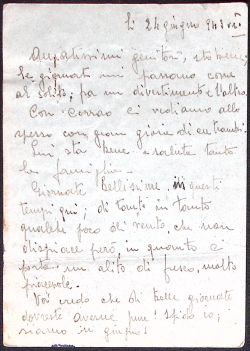 Lì 24 giugno 943 XXI
Amatissimi genitori, sto bene;
le giornate mi passano come
al solito; fra un divertimento e l'altro.
Con Corrao ci vediamo allo
spesso con gran gioia di entrambi.
Lui sta bene e saluta tanto
la famiglia.
Giornate bellissime in questi
tempi qui; di tanto in tanto
qualche poco di vento, che non
dispiace però, in quanto ci
porta un alito di fresco, molto
piacevole.
Voi credo che di belle giornate
dovreste averne pure! Sfido io;
siamo in giugno!